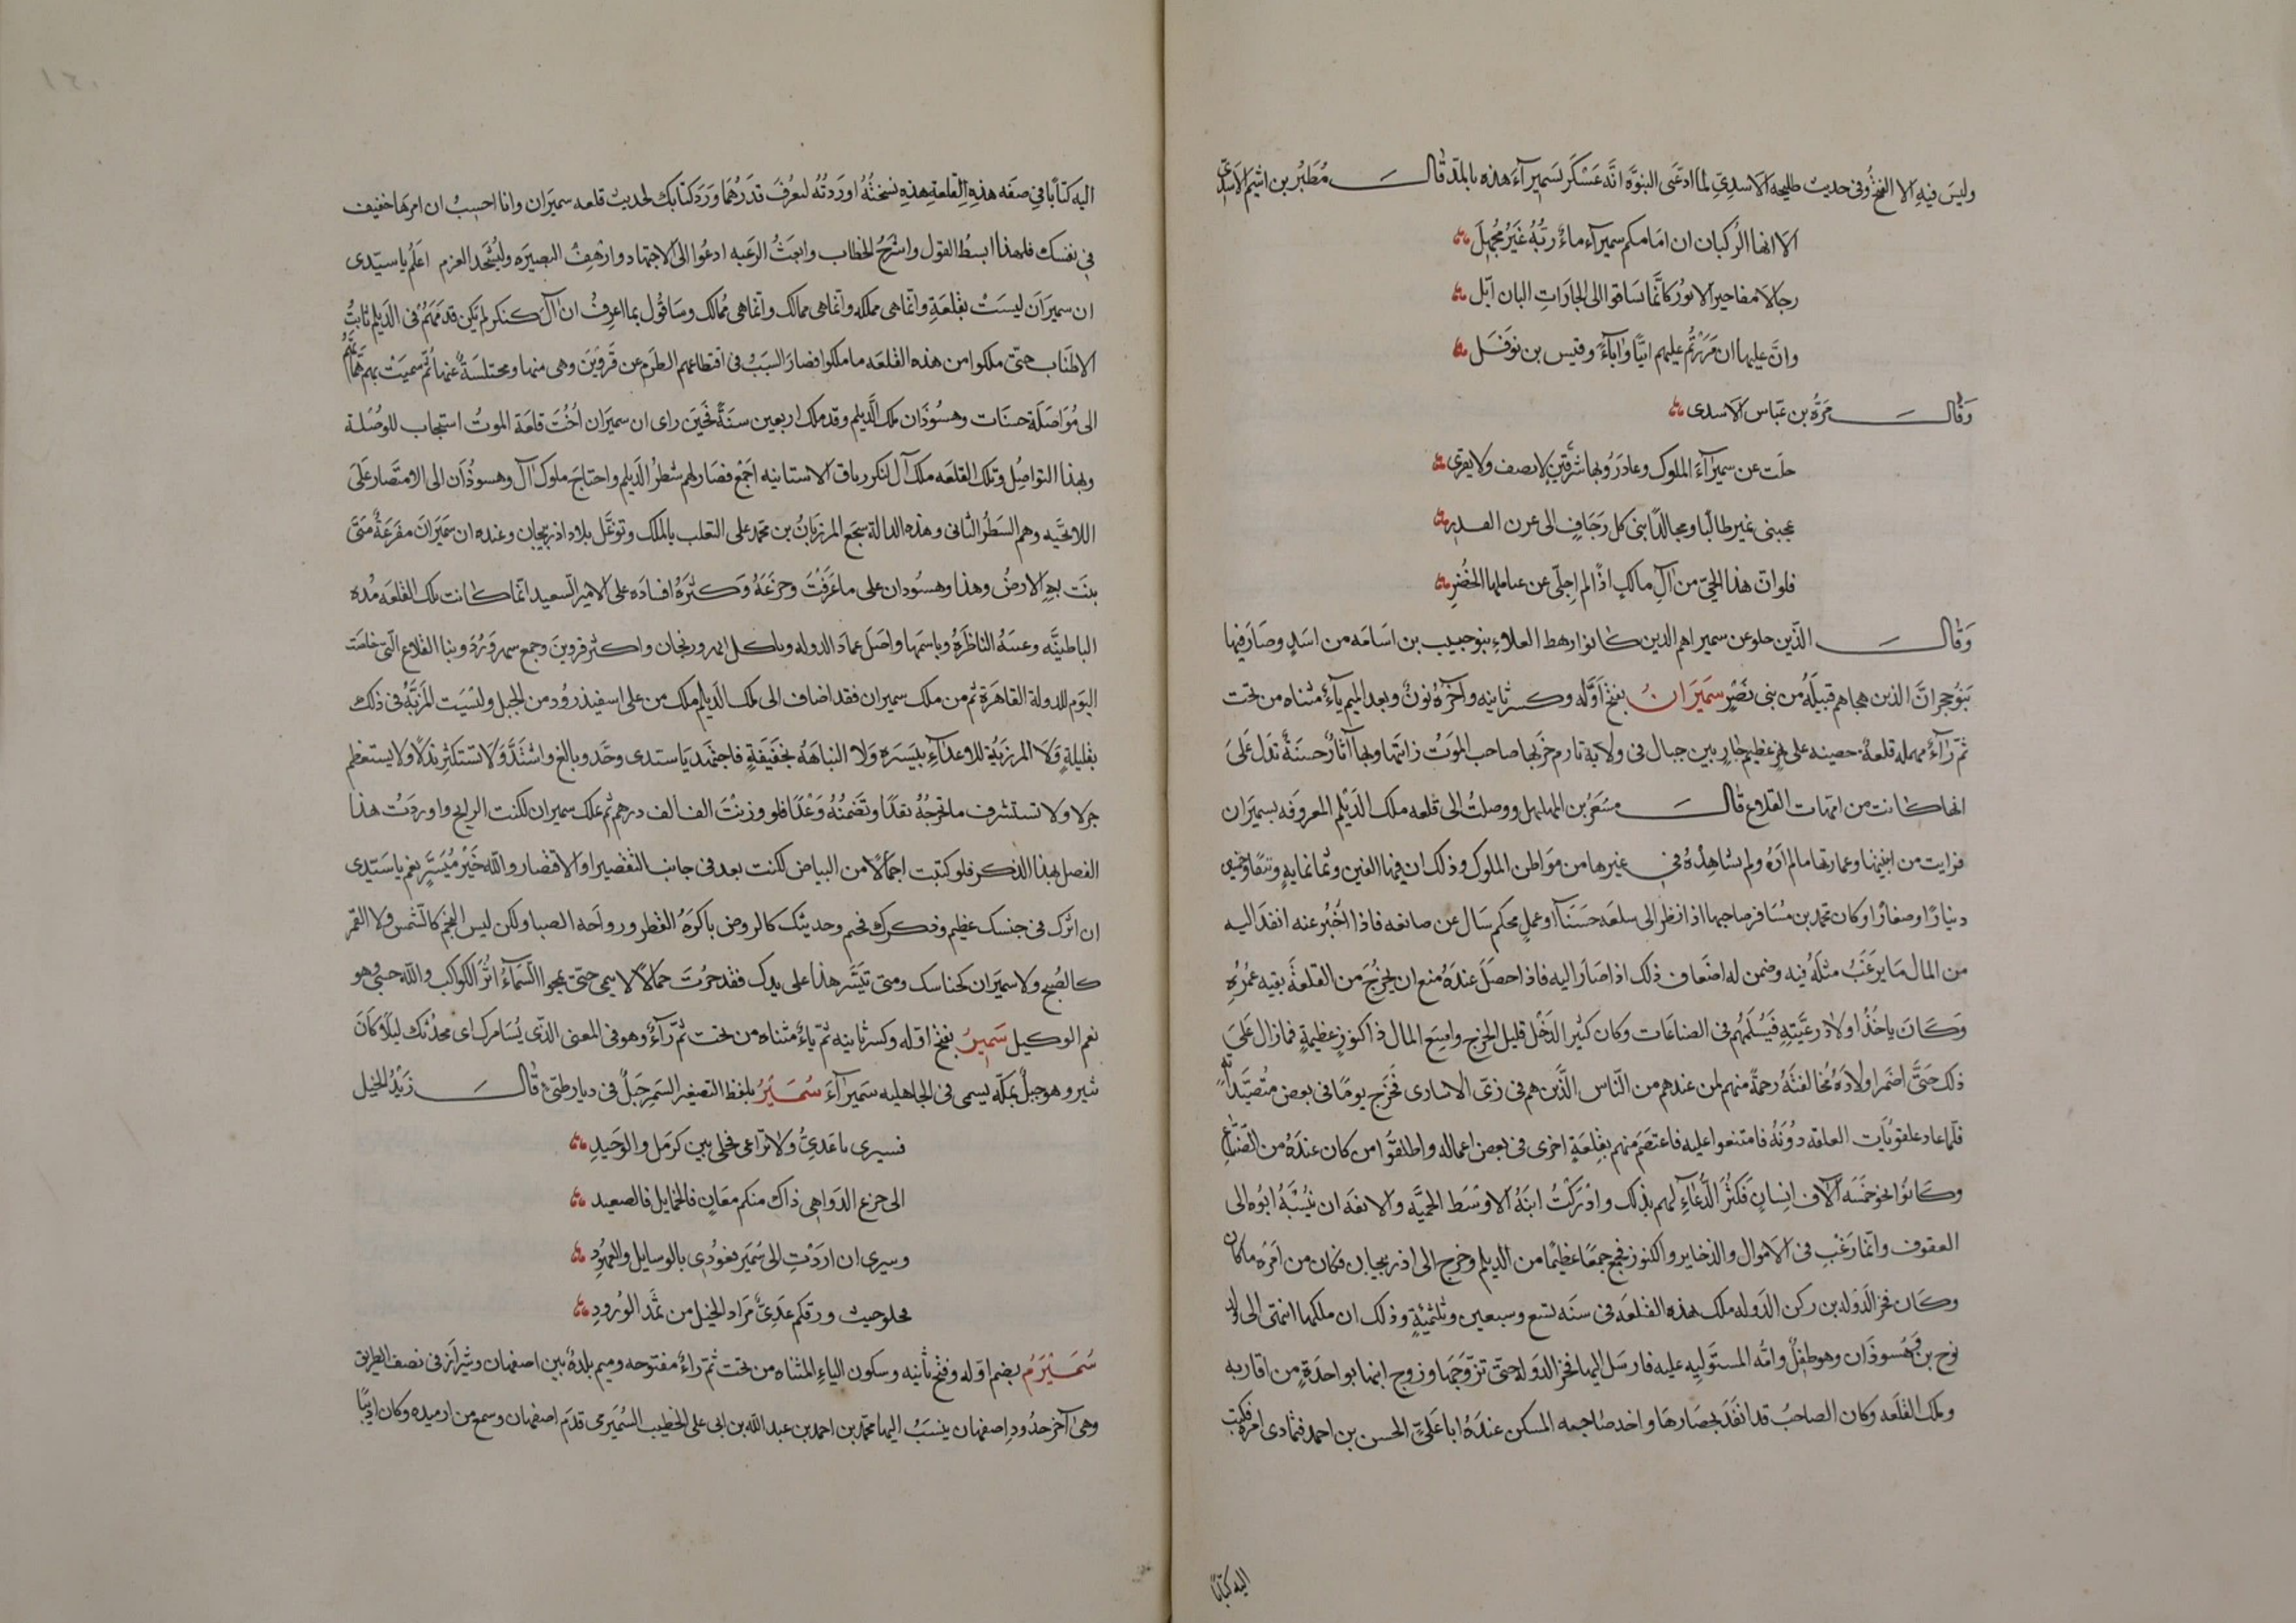 وليس فيه الا الفتح وفى حديث طليحه الاسدى لما ادعى النبوه انه عسكر بسميرآء هذه بالمد قال مُطَيْر بن اشيم الاسدى
الا ايها الركبان ان امامكم سميرآء ماءٌ ربه غير مجهل
رجالا مفاحير الاىور كانما تساقوا الى الجارات البان ايل
وان عليها ان مررتم عليهم ابيا واباء وقيس بن نوفل
وقال مرة بن عباس الاسدى
جلت عن سميرآء الملوك وغادروا بها شر قن لا يضيف ولا يقرى
هجينى نمير طالبا ومجالدا بنى كل زحاف الى عرن القدر
فلو ان هذا الحى من آل مالك اذا لم اجلى عن عيالهما الخضر
وقال الذين جلو عن سميرا هم الدين كانوا رهط العلاء بنو حبيب بن اسامه من اسد وصار فيها
بنو حجران الذين هجاهم قبيلة من بنى نصر سَمِيرَان بفتح اوله وكسر ثانيه وآخره نون وبعد الميم يآء مثناه من تحت
ثم رآء مهمله قلعة حصينه على نهر عظيم جار بين جبال فى ولاية تارم خربها صاحب الموت رايتها وبها آثار حسنة تدل على
انها كانت من امهات القلاع قال مسعر بن المهلهل ووصلت الى قلعه ملك الديلم المعروفه بسميران
فرايت من ابنيتها وعمارتها ما لم اره ولم يشاهده فى غيرها من مواطن الملوك وذلك ان فيها الفين وثمانمايه ونيفا وخمسين
دينارا وصغارا وكان محمد بن مسافر صاحبها اذا نظر الى سلعه حسنا او عمل محكم سال عن صانعه فاذا اخبر عنه انفذ اليه
من المال ما يرغب مثله فيه وضمن له اضعاف ذلك اذا صار اليه فاذا حصل عنده منع ان يخرج من القلعة بقيه عمره
وكان ياخذ اولاد رعيته فيسلمهم فى الصناعات وكان كثير الدخل قليل الخرج واسع المال ذا كنوز عظيمة فما زال على
ذلك حتى اضمر اولاده مخالفته رحمة منهم لمن عندهم من الناس الذين هم فى زى الاسارى فخرج يوما فى بعض متصيداته
فلما عاد غلقوا باب القلعه دونه فامتنعوا عليه فاعتصم منهم بقلعة اخرى فى بعض اعماله واطلقوا من كان عنده من الصناع
وكانوا نحو خمسه آلاف انسان فكثر الدعاء لهم بذلك وادركت ابنه الاوسط الحميه والانفه ان ينسبه ابوه الى
العقوق وانما رغب فى الاموال والذخاير والكنوز فجمع جمعا عظيما من الديلم وخرج الى اذربيجان فكان من امره ما كان
وكان فخر الدوله بن ركن الدوله ملك هذه القلعه فى سنه تسع وسبعين وثلثمئة وذلك ان ملكها انتهى الى ولد
نوح بن وهسوذان وهو طفل وامه المستوليه عليه فارسل اليها فخر الدوله حتى تزوجها وزوج ابنها بواحدة من اقاربه
وملك القلعه وكان الصاحب قد انفذ بحصارها واخد صاحبها المسكن عنده ابا على الحسن بن احمد فتمادى امره فكتب
اليه كتابا
اليه كتابا فى صفه هذه القلعة هذه نسخته اوردته ليعرف قدرها ورد كتابك بحديث قلعه سميران وانا احسب ان امرها خفيف
فى نفسك فلهذا ابسط القول واشرح الخطاب وابعث الرغبه ادعوا الى الاجتهاد وارهف البصيره وليشحذ العزم اعلم يا سيدى
ان سميران ليست بقلعة وانما هى مملكه وانما هى ممالك وانما هى ممالك وساقول بما اعرف ان آل كنكر لم يكن قدمهم فى الديلم ثابت
الاطناب حتى ملكوا من هذه القلعه ما ملكوا فصار السبب فى اقتطاعهم الطرم عن قزوين وهى منها ومختلسة عنها ثم سميت بهم همتهم
الى مواصلة حسنات وهسوذان ملك الديلم وقد ملك اربعين سنة فحين راى ان سميران اخت قلعة الموت استجاب للوصلة
وبهذا التواصل وتلك القلعه ملك آل لنكر باقى الاستانيه اجمع فصار لهم شطر الديلم واحتاج ملوك آل وهسوذان الى الانتصار على
اللائجيه وهم الشطر الثانى وهذه الدالة سجع المرزبان بن محمد على التغلب بالملك وتوغل بلاد اذربيجان وعنده ان سميران مفزعة متى
بنت به الارض وهذا وهسودان على ما عرفت وجزعه وكثره افساده على الامير السعيد انما كانت تلك القلعه مده
الباطنيه وعينه الناظرة وباسمها واصل عماد الدوله وباكل ابهر وزنجان واكثر قزوين وجمع سهرورد وبنا القلاع التى خلصت
اليوم للدولة القاهرة ثم من ملك سميران فقد اضاف الى ملك الديلم ملك من على اسفيذروذ من الجبل وليست المزية فى ذلك
بقليلة ولا المرزية للاعداء بيسيره ولا النباهه بخفيفة فاجتهد يا سيدى وجد وبالغ واشتد ولا تستكثر بذلا ولا يستعظم
جزلا ولا تستشرف ما تخرجه نقدا وتضمنه وعدا فلو وزنت الف الف درهم ثم تملك سميران لكنت الرابح واوردت هذا
الفصل بهذا الذكر فلو كتبت اجمالا من البياض لكنت بعد فى جانب التقصير او الاقتصار والله خير ميسر نعم يا سيدى
ان اثرك فى جنسك عظيم وذكرك فخيم وحديثك كالروض باكره القطر ورواحه الصبا ولكن ليس النجم كالشمس ولا القمر
كالصبح ولا سميران كخناسك ومتى تيسر هذا على يدك فقد حزت جمالا لا يمحى حتى يمحوا السماء اثر الكواكب والله حسبى وهو
نعم الوكيل سَمِيرُ بفتح اوله وكسر ثانيه ثم ياء مثناه من تحت ثم رآء وهو فى المعنى الذى يسامرك اى يحدثك ليلا وكان
ثبير وهو جبل بمكه يسمى فى الجاهليه سميرآء سُمَيْرُ بلفظ التصغير السمر جبل فى ديار طىء قال زيد الخيل
فسيرى يا عدى ولا تراعى فحلى بين كرمل والوحيد
الى جزع الدواهى ذاك منكم مغان فالخمايل فالصعيد
وسيرى ان اردت الى سمير فعودى بالوسايل والعهود
محلو حيث ورقكم عدى مراد الخيل من ثمد الورود
سُمَيْرَمُ بضم اوله وفتح ثانيه وسكون الياء المثناه من تحت ثم راء مفتوحه وميم بلدة بين اصفهان وشيراز فى نصف الطريق
وهى آخر حدود اصفهان ينسب اليها محمد بن احمد بن عبد الله بن ابى على الخطيب السميرمى قدم اصفهان وسمع من ارميده وكان اديبا